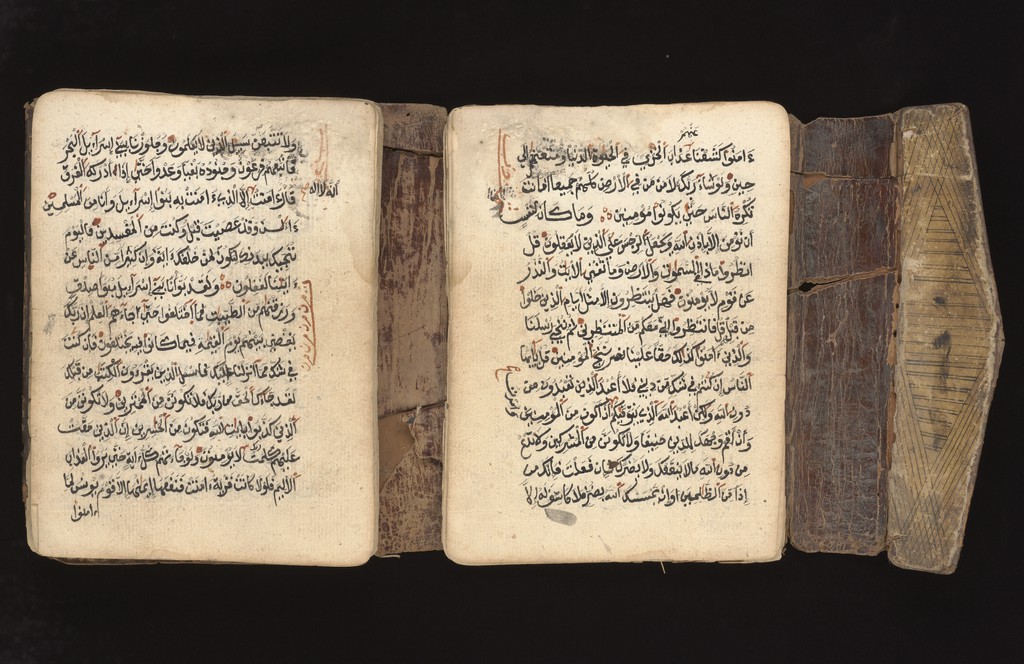 ولا تتبعن سبيل الذين لا يعلمون وجوزنا ببني اسراءيل البحر
فاتبعهم فرعون وجنوده بغيا وعدوا حتى اذا ادركه الغرق
انه لا اله
قال ءامنت الا الذي ءامنت به بنوا اسراءيل وانا من المسلمين
ءالن وقد عصيت قبل وكنت من المفسدين فاليوم
ننجيك ببدنك لتكون لمن خلفك ءاية وان كثيرا من الناس عن
ءايتنا لغفلون ولقد بوأنا بني اسراءيل مبوا صدق
ورزقنهم من الطيبت فما اختلفوا حتى جاءهم العلم ان ربك
يقضي بينهم يوم القيمة فيما كانوا فيه يختلفون فان كنت
في شك مما انزلنا اليك فسل الذين يقرءون الكتب من قبلك
لقد جاءك الحق من ربك فلا تكونن من الممترين ولا تكونن من
الذين كذبوا بايات الله فتكون من الخسرين ان الذين حقت
عليهم كلمت ربك لا يومنون ولو جاءتهم كل ءاية حتى يروا العذاب
الاليم فلولا كانت قرية ءامنت فنفعها ايمنها الا قوم يونس لما
امنوا
عنهم
ءامنوا كشفنا عذاب الخزي في الحيوة الدنيا ومتعنهم الى
حين ولو شاء ربك لامن من في الارض كلهم جميعا افانت
تكره الناس حتى يكونوا مومنين وما كان لنفس
ان تومن الا باذن الله ويجعل الرجس على الذين لا يعقلون قل
انظروا ماذا في السموات والارض وما تغني الايت والنذر
عن قوم لا يومنون فهل ينتظرون الا مثل ايام الذين خلوا
من قبلهم قل فانتظروا اني معكم من المنتظرين ثم ننجي رسلنا
والذين ءامنوا كذلك حقا علينا ننج المومنين قل يايها
الناس ان كنتم في شك من ديني فلا اعبد الذين تعبدون من
دون الله ولكن اعبد الله الذي يتوفيكم وامرت ان اكون من المومنين
وان اقم وجهك للدين حنيفا ولا تكونن من المشركين ولا تدع
من دون الله ما لا ينفعك ولا يضرك فان فعلت فانك
اذا من الظلمين وان يمسسك الله بضر فلا كاشف له الا